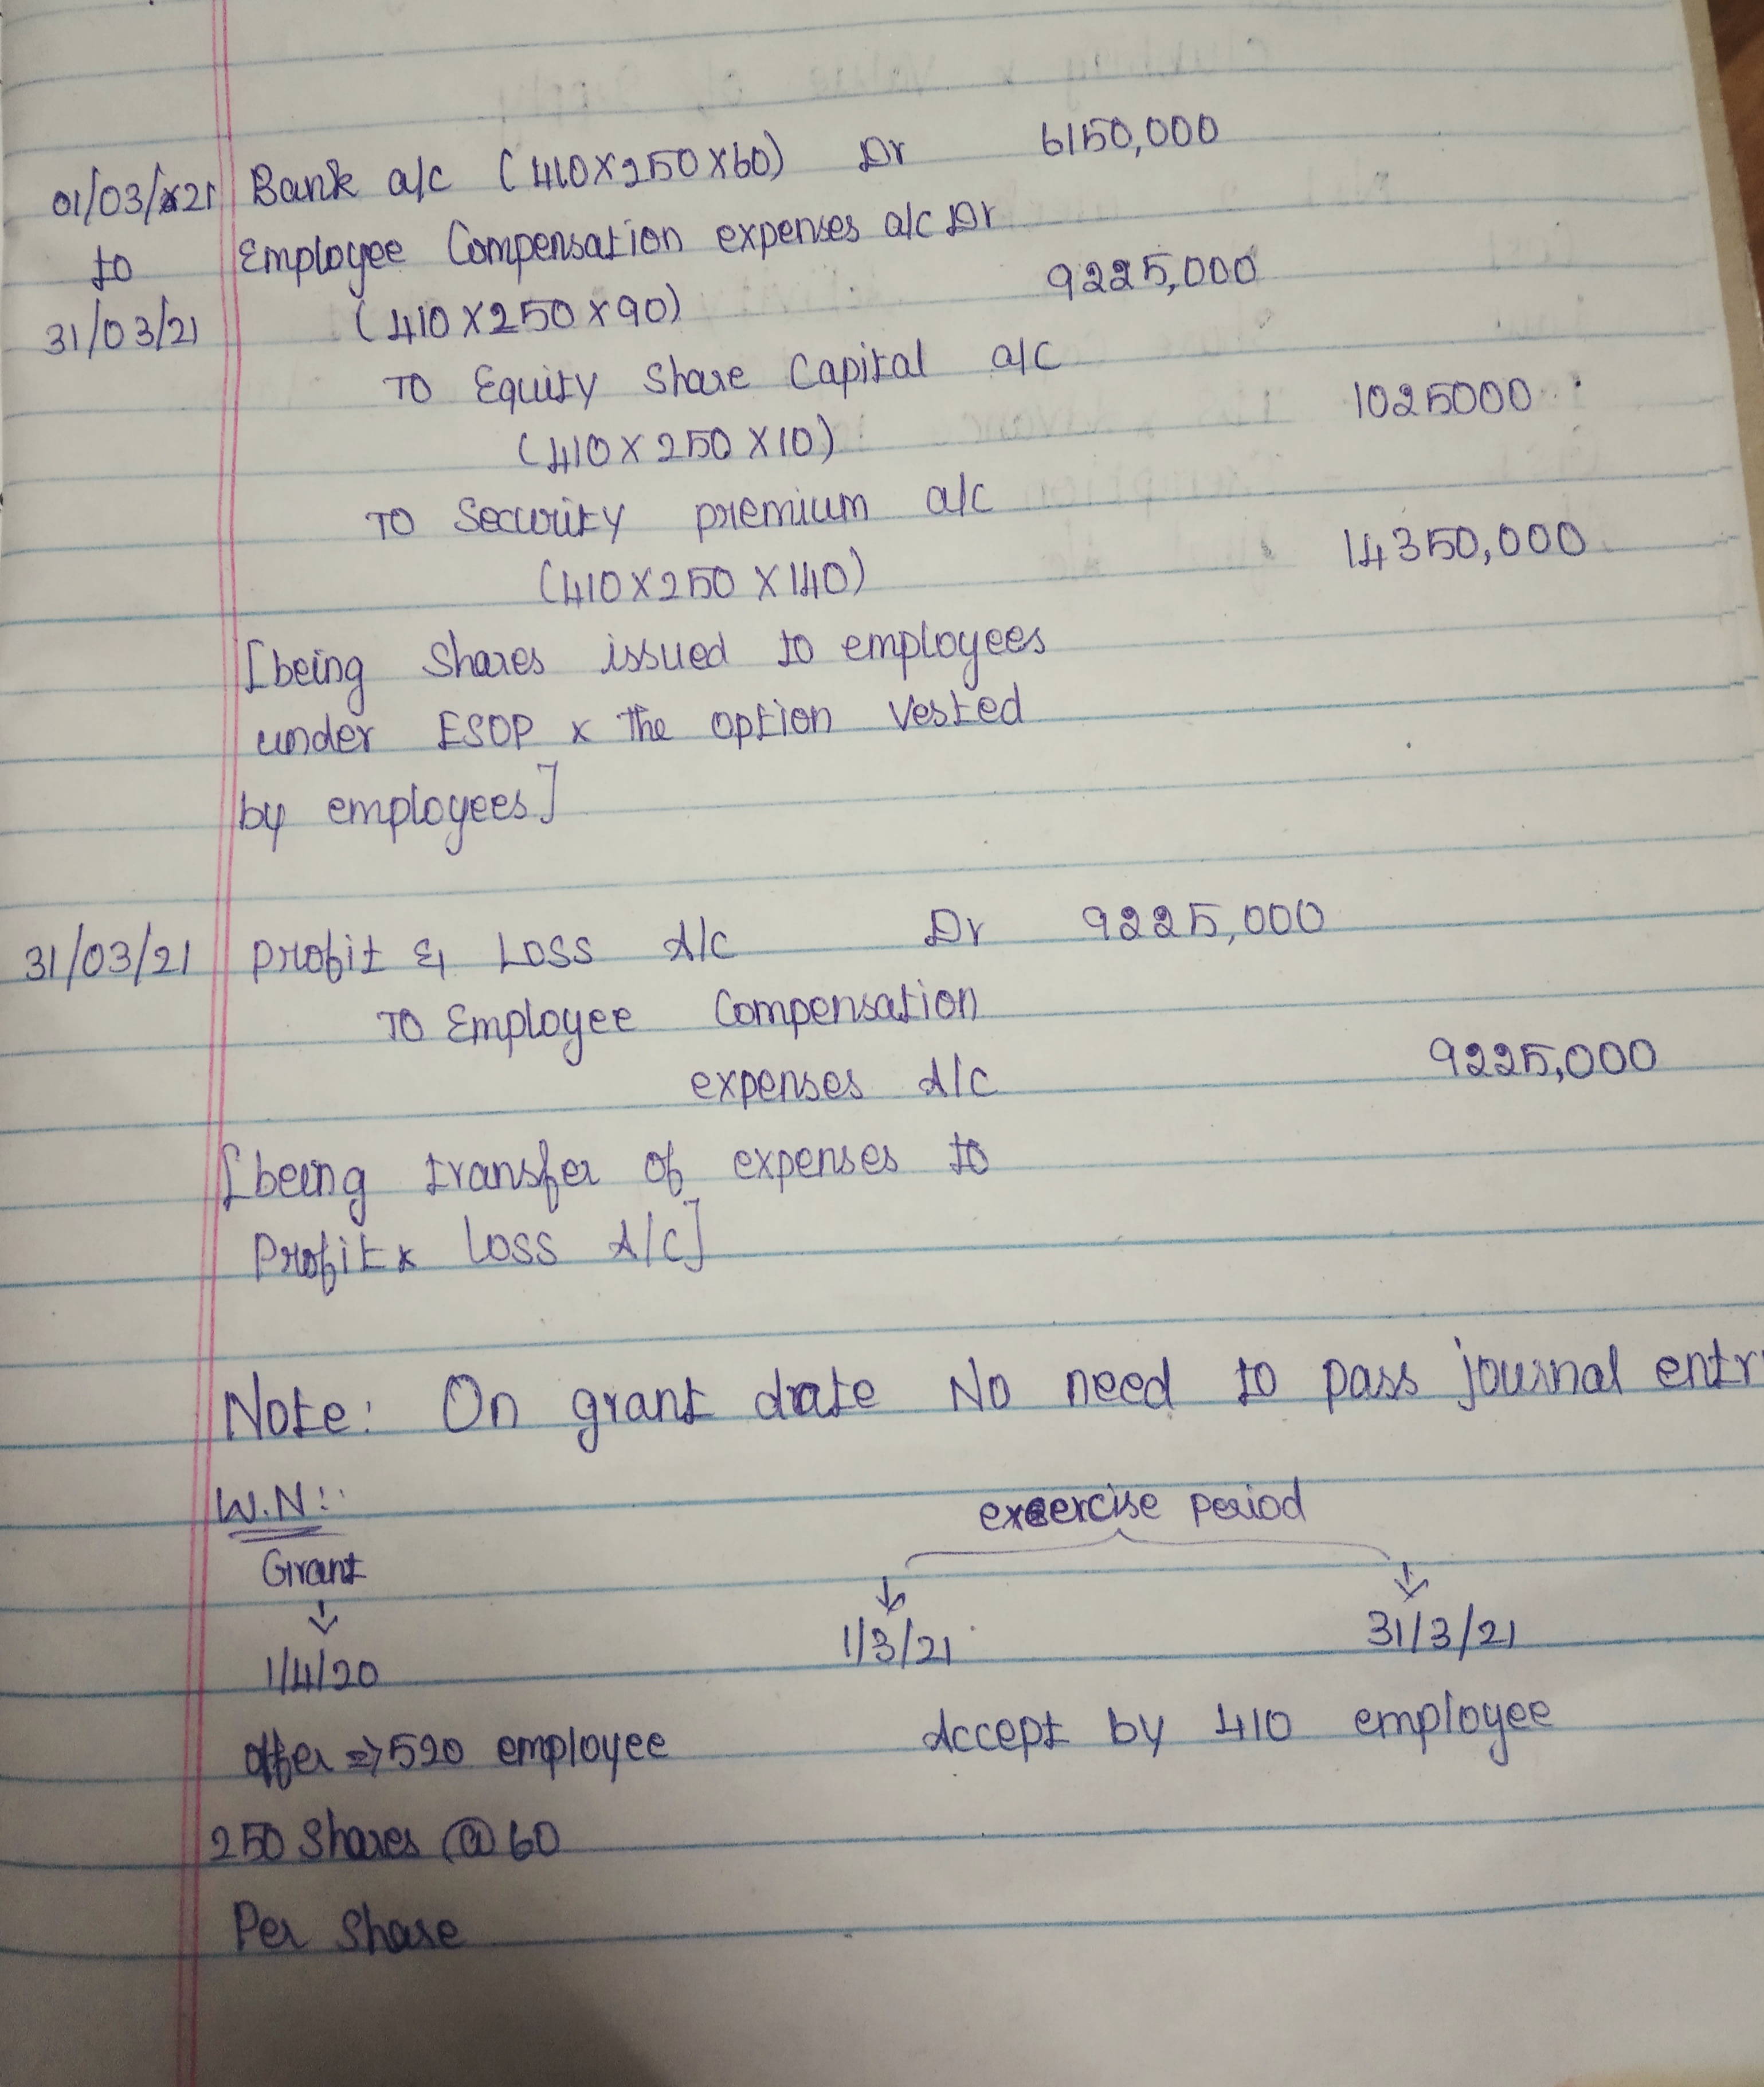 01/03/21 Bank a/c (410×250×60) Dr 6150,000
to Employee Compensation expenses a/c Dr
31/03/21 (410×250×90) 9225,000
TO Equity Share Capital a/c
(410×250×10) 1025000
TO Security premium a/c
(410×250×140) 14350,000
[being Shares issued to employees
under ESOP & The option vested
by employees]
31/03/21 Profit & Loss A/c Dr 9225,000
TO Employee Compensation
expenses A/c 9225,000
[being transfer of expenses to
Profit & Loss A/c]
Note: On grant date No need to pass journal entr
W.N:
exercise period
Grant
1/4/20 1/3/21 31/3/21
offer ⇒ 520 employee Accept by 410 employee
250 Shares @ 60
Per Share